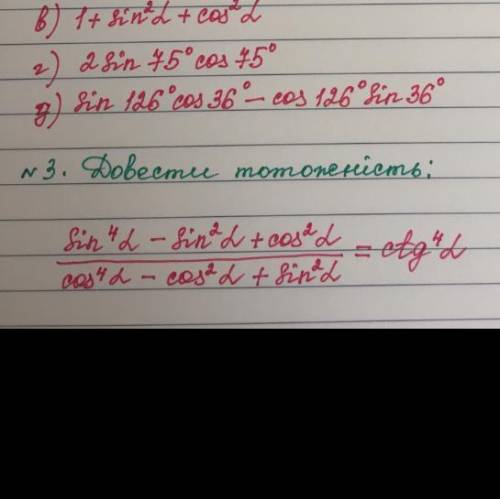 в) 1 + sin²α + cos²α
г) 2 sin 75° cos 75°
д) sin 126° cos 36° − cos 126° sin 36°
№3. Довести тотожність:
sin⁴α − sin²α + cos²α
cos⁴α − cos²α + sin²α = ctg⁴α